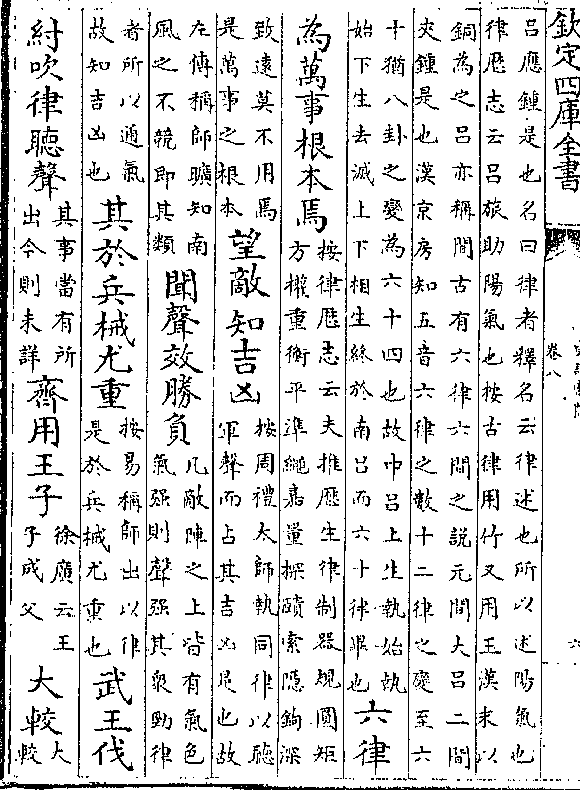 欽定四庫全書
卷八
六
呂應鍾是也名曰律者釋名云律述也所以述陽氣也
律厯志云呂旅助陽氣也按古律用竹又用玉漢末以
銅為之呂亦稱間古有六律六間之說元間大呂二間
夾鍾是也漢京房知五音六律之數十二律之變至六
十猶八卦之變為六十四也故中呂上生執始執
始下生去滅上下相生終於南呂而六十律畢也
六律
為萬事根本焉
按律厯志云夫推厯生律制器規圓矩
方權重衡平準繩嘉量探賾索隱鉤深
致遠莫不用焉
是萬事之根本
望敵知吉凶
按周禮太師執同律以聽
軍聲而占其吉凶是也故
左傳稱師曠知南
風之不競即其類
聞聲效勝負
凡敵陣之上皆有氣色
氣强則聲强其衆勁律
者所以通氣
故知吉凶也
其於兵械尤重
按易稱師出以律
是於兵械尤重也
武王伐
紂吹律聽聲
其事當有所
出今則未詳
齊用王子
徐廣云王
子成父
大較
大
較